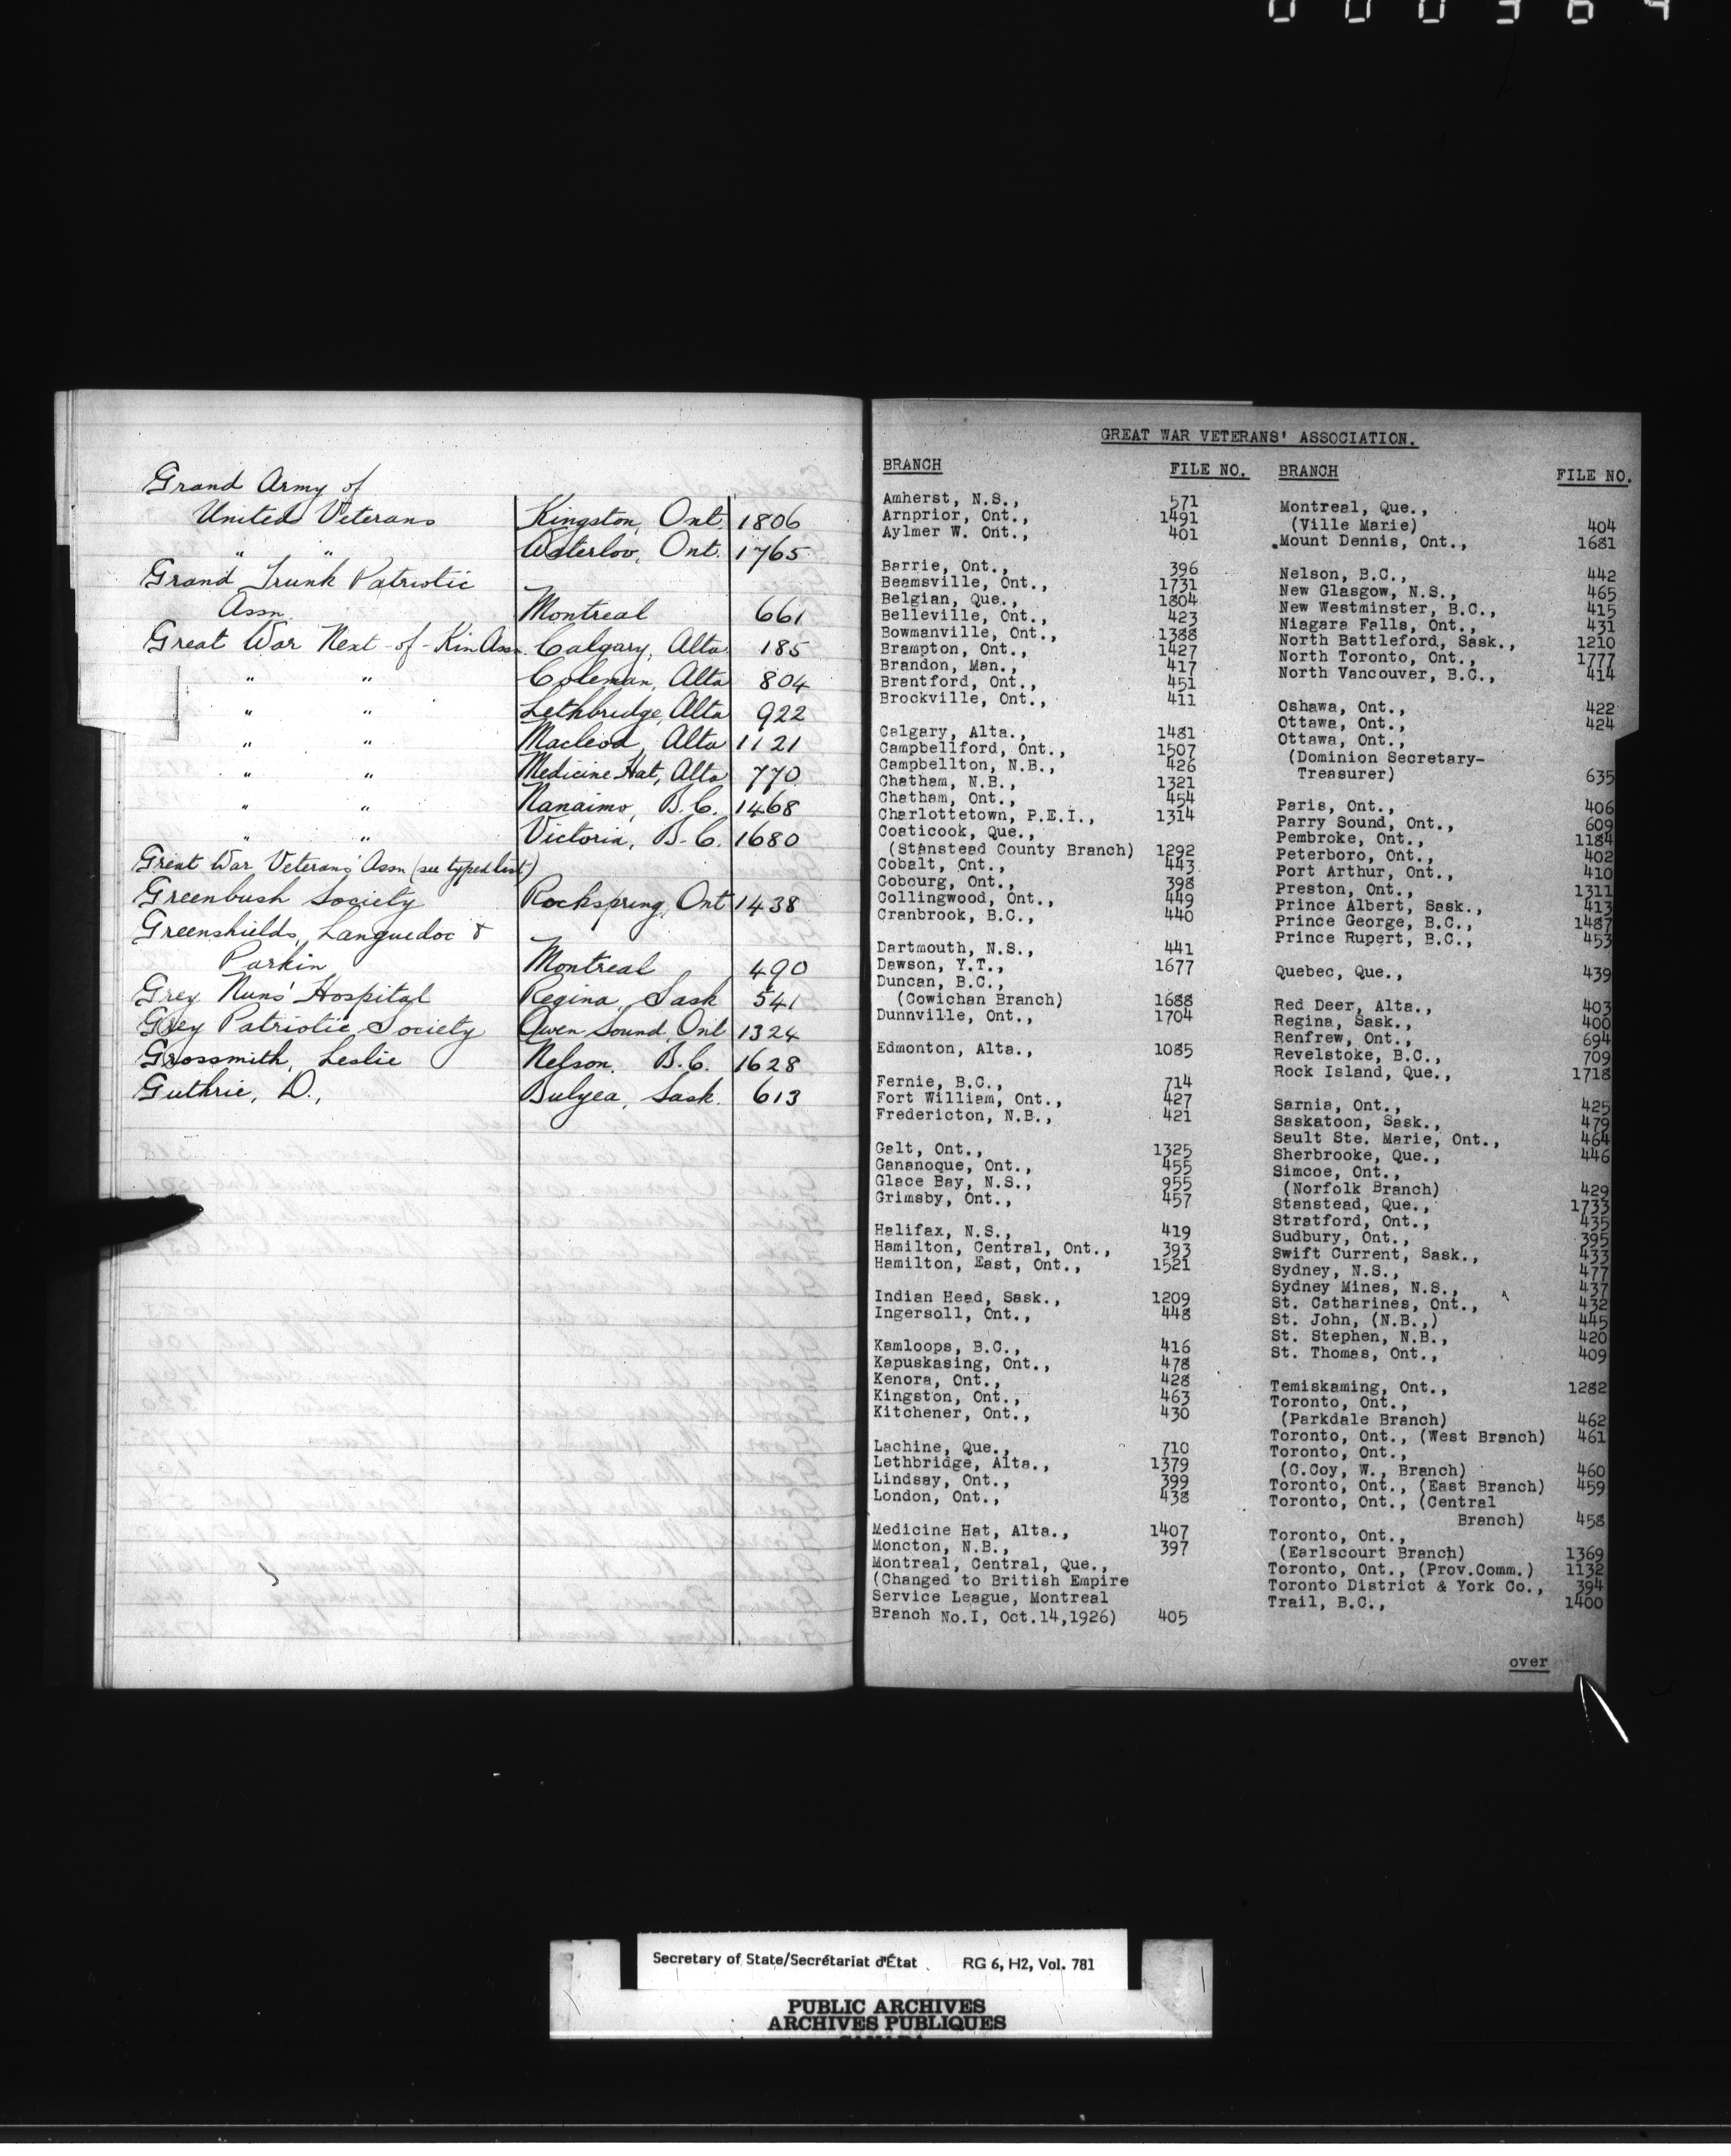 Grand Army of
United Veterans Kingston, Ont 1806
" " Waterloo, Ont. 1765
Grand Trunk Patriotic
Assn. Montreal 661
Great War Next-of-Kin Assn. Calgary, Alta 185
" " Coleman, Alta 804
" " Lethbridge, Alta 922
" " Macleod, Alta 1121
" " Medicine Hat, Alta 770
" " Nanaimo, B.C. 1468
" " Victoria, B.C. 1680
Great War Veterans' Assn (see typed list)
Greenbush Society Rockspring, Ont 1438
Greenshields, Languedoc &
Parkin Montreal 490
Grey Nuns' Hospital Regina, Sask 541
Grey Patriotic Society Owen Sound, Ont 1324
Grossmith, Leslie Nelson, B.C. 1628
Guthrie, D., Bulyea, Sask. 613
GREAT WAR VETERANS' ASSOCIATION.
BRANCH FILE NO.
Amherst, N.S., 571
Arnprior, Ont., 1491
Aylmer W. Ont., 401
Barrie, Ont., 396
Beamsville, Ont., 1731
Belgian, Que., 1804
Belleville, Ont., 423
Bowmanville, Ont., 1388
Brampton, Ont., 1427
Brandon, Man., 417
Brantford, Ont., 451
Brockville, Ont., 411
Calgary, Alta., 1481
Campbellford, Ont., 1507
Campbellton, N.B., 426
Chatham, N.B., 1321
Chatham, Ont., 454
Charlottetown, P.E.I., 1314
Coaticook, Que.,
(Stanstead County Branch) 1292
Cobalt, Ont., 443
Cobourg, Ont., 398
Collingwood, Ont., 449
Cranbrook, B.C., 440
Dartmouth, N.S., 441
Dawson, Y.T., 1677
Duncan, B.C.,
(Cowichan Branch) 1688
Dunnville, Ont., 1704
Edmonton, Alta., 1085
Fernie, B.C., 714
Fort William, Ont., 427
Fredericton, N.B., 421
Galt, Ont., 1325
Gananoque, Ont., 455
Glace Bay, N.S., 955
Grimsby, Ont., 457
Halifax, N.S., 419
Hamilton, Central, Ont., 393
Hamilton, East, Ont., 1521
Indian Head, Sask., 1209
Ingersoll, Ont., 448
Kamloops, B.C., 416
Kapuskasing, Ont., 478
Kenora, Ont., 428
Kingston, Ont., 463
Kitchener, Ont., 430
Lachine, Que., 710
Lethbridge, Alta., 1379
Lindsay, Ont., 399
London, Ont., 438
Medicine Hat, Alta., 1407
Moncton, N.B., 397
Montreal, Central, Que.,
(Changed to British Empire
Service League, Montreal
Branch No.I, Oct.14,1926) 405
BRANCH FILE NO.
Montreal, Que.,
(Ville Marie) 404
Mount Dennis, Ont., 1681
Nelson, B.C., 442
New Glasgow, N.S., 465
New Westminster, B.C., 415
Niagara Falls, Ont., 431
North Battleford, Sask., 1210
North Toronto, Ont., 1777
North Vancouver, B.C., 414
Oshawa, Ont., 422
Ottawa, Ont., 424
Ottawa, Ont.,
(Dominion Secretary-
Treasurer) 635
Paris, Ont., 406
Parry Sound, Ont., 609
Pembroke, Ont., 1184
Peterboro, Ont., 402
Port Arthur, Ont., 410
Preston, Ont., 1311
Prince Albert, Sask., 413
Prince George, B.C., 1487
Prince Rupert, B.C., 453
Quebec, Que., 439
Red Deer, Alta., 403
Regina, Sask., 400
Renfrew, Ont., 694
Revelstoke, B.C., 709
Rock Island, Que., 1718
Sarnia, Ont., 425
Saskatoon, Sask., 479
Sault Ste. Marie, Ont., 464
Sherbrooke, Que., 446
Simcoe, Ont.,
(Norfolk Branch) 429
Stanstead, Que., 1733
Stratford, Ont., 435
Sudbury, Ont., 395
Swift Current, Sask., 433
Sydney, N.S., 477
Sydney Mines, N.S., 437
St. Catharines, Ont., 432
St. John, (N.B.,) 445
St. Stephen, N.B., 420
St. Thomas, Ont., 409
Temiskaming, Ont., 1282
Toronto, Ont.,
(Parkdale Branch) 462
Toronto, Ont., (West Branch) 461
Toronto, Ont.,
(C.Coy, W., Branch) 460
Toronto, Ont., (East Branch) 459
Toronto, Ont., (Central
Branch) 458
Toronto, Ont.,
(Earlscourt Branch) 1369
Toronto, Ont., (Prov.Comm.) 1132
Toronto District & York Co., 394
Trail, B.C., 1400
over
Secretary of State/Secrétariat d'État RG 6, H2, Vol. 781
PUBLIC ARCHIVES
ARCHIVES PUBLIQUES